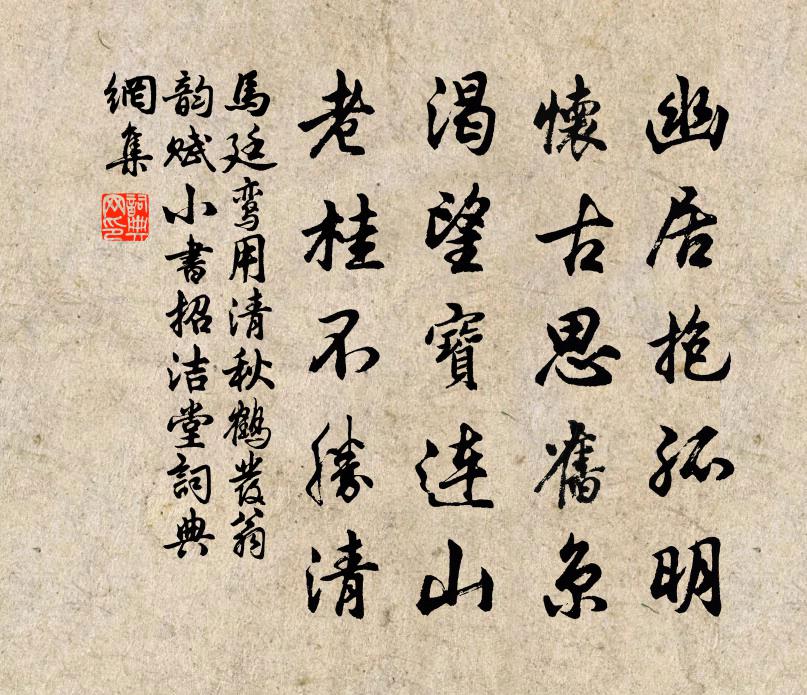 幽居抱孤明
懷古思舊京
渴望寶連山
老桂不勝清
馬廷鸾用清秋鶴發翁
韵赋小書招洁堂詞典
網集
詞典网印